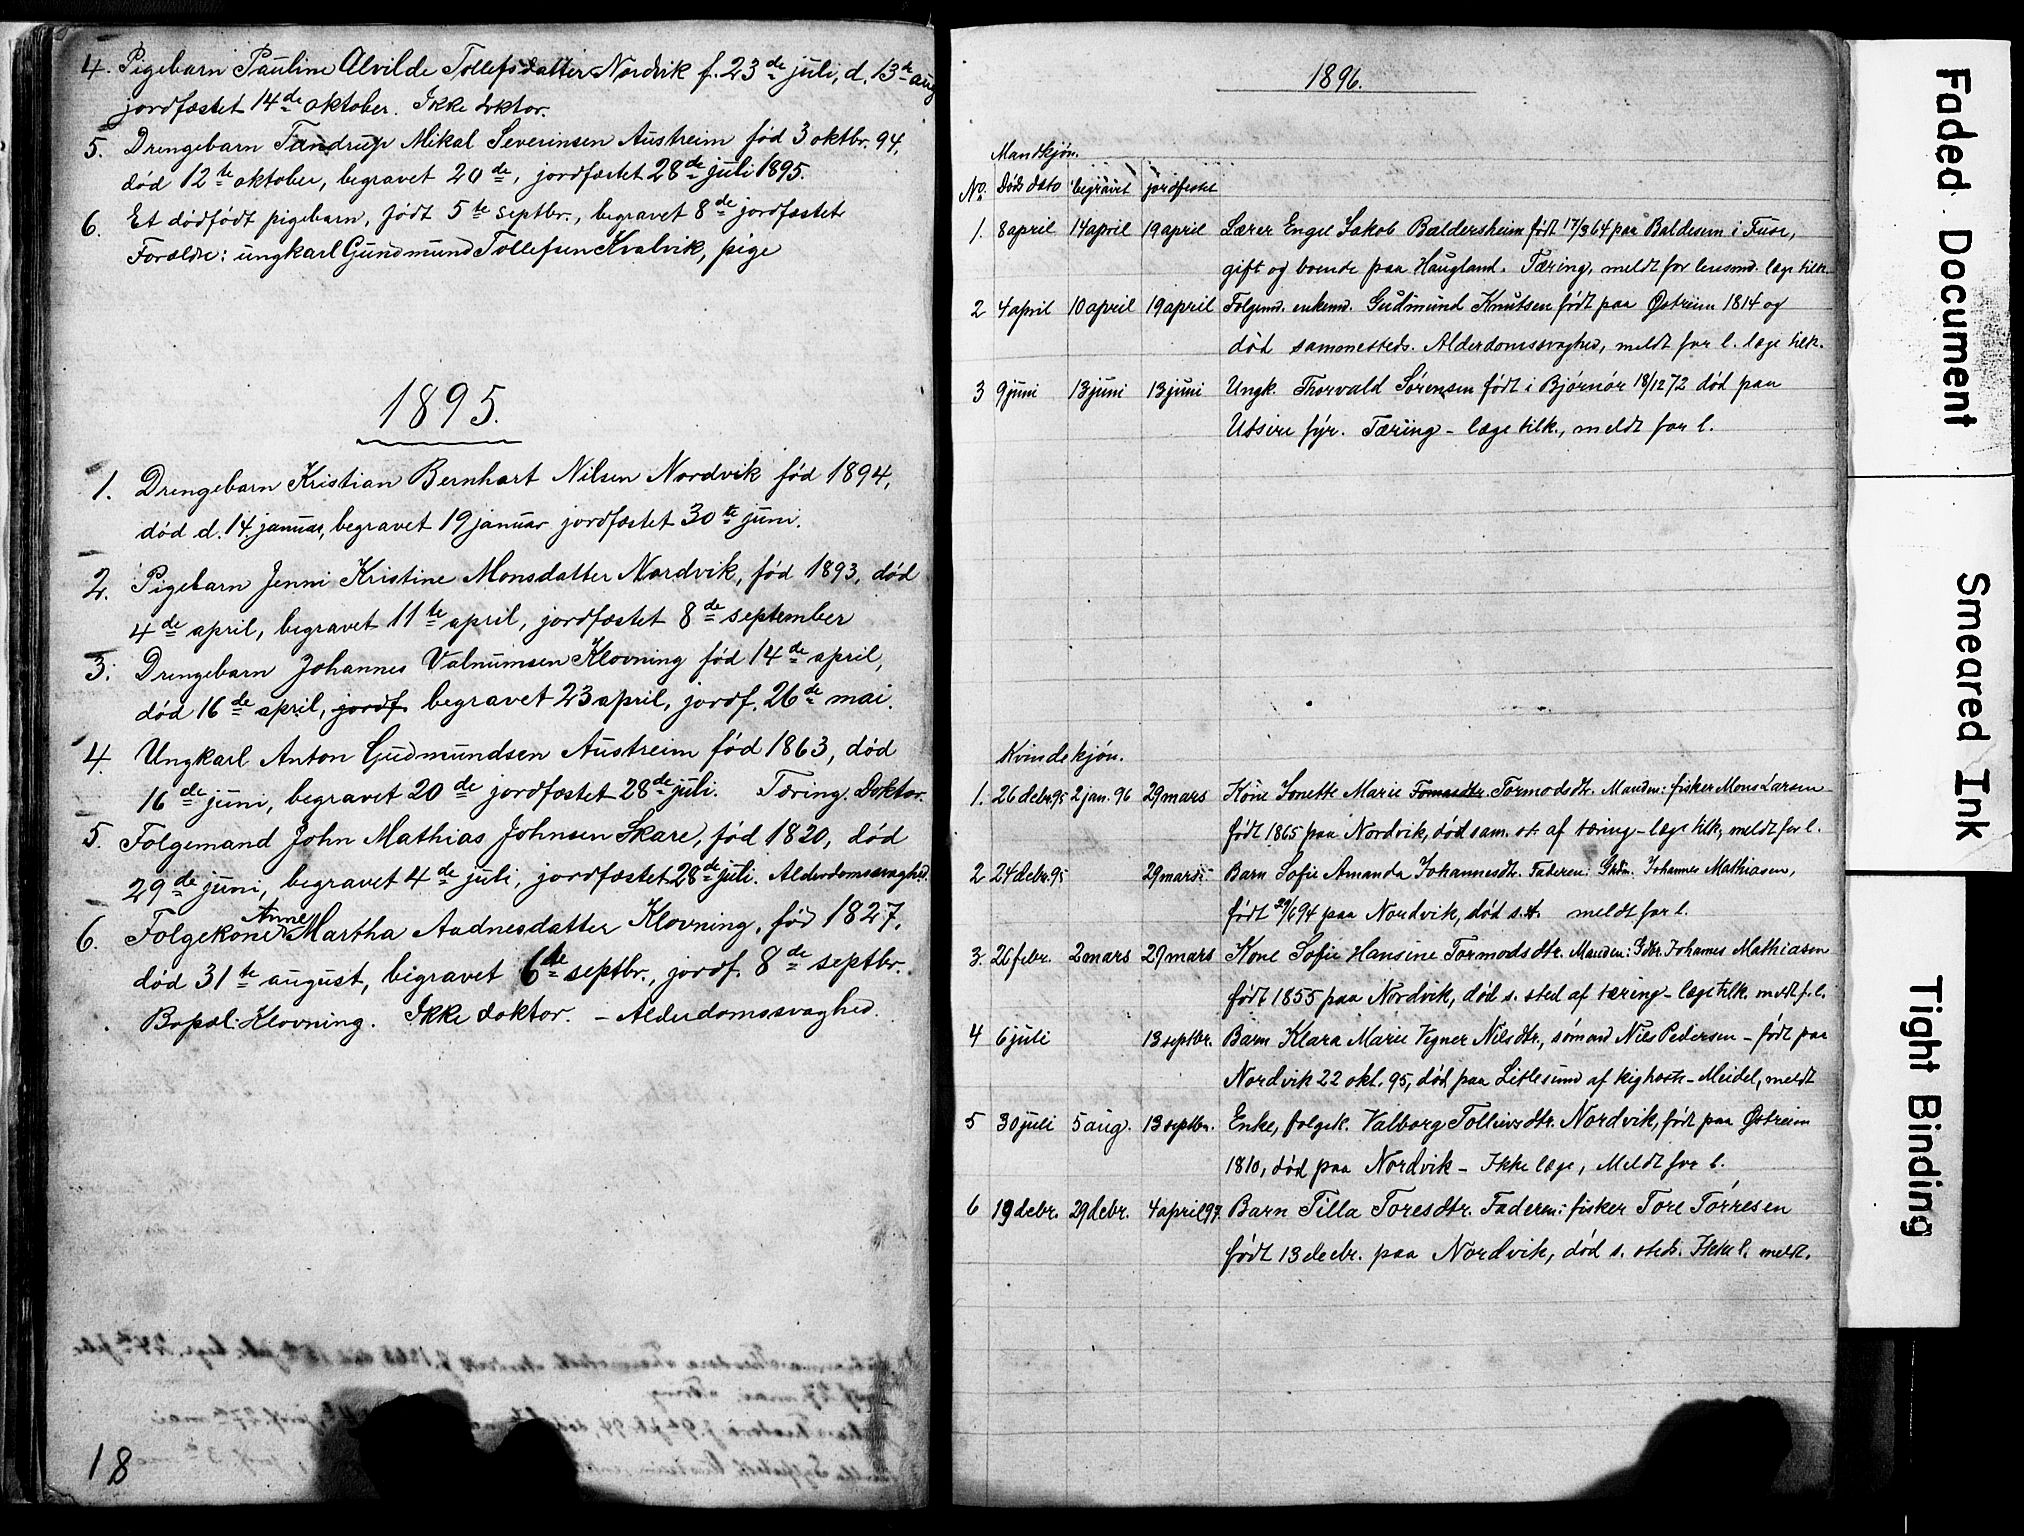 4. Pigebarn Pauline Alvilde Tollefsdatter Nordvik f. 23de juli, d. 13de aug
jordfæstet 14de oktober. Ikke doktor.
5. Drengebarn Tandrup Mikal Severinsen Austreim fød 3 oktbr. 94,
død 12te oktober, begravet 20de, jordfæstet 28de juli 1895.
6. Et dødfødt pigebarn, født 5te septbr., begravet 8de jordfæstet
Forældre: ungkarl Gundmund Tollefsen Kvalvik, pige
1895.
1. Drengebarn Kristian Bernhart Nilsen Nordvik fød 1894,
død d. 14. januar, begravet 19 januar jordfæstet 30te juni.
2. Pigebarn Jenni Kristine Monsdatter Nordvik, fød 1893, død
4de april, begravet 11te april, jordfæstet 8de september
3. Drengebarn Johannes Valnumsen Klovning fød 14de april,
død 16de april, jordf. begravet 23 april, jordf. 26de mai.
4. Ungkarl Anton Gudmundsen Austreim fød 1863, død
16de juni, begravet 20de jordfæstet 28de juli. Tæring. Doktor.
5. Folgemand John Mathias Johnsen Skare, fød 1820, død
29de juni, begravet 4de juli, jordfæstet 28de juli. Alderdomssvaghed.
6. Folgekone Anne Martha Aadnesdatter Klovning, fød 1827,
død 31te august, bigravet 6te septbr., jordf. 8de septbr.
Bopæl: Klovning. Ikke doktor. – Alderdomssvaghed.
18
1896.
Mandkjøn.
No. Døds dato begravet jordfestet
1. 8 april 14 april 19 april Lærer Engel Jakob Baldersheim født 17/3 64 paa Baldesem i Fuse,
gift og boende paa Haugland. Tæring, meldt for lensmd. læge tilk.
2 4 april 10 april 19 april Folgemd. enkemd. Gudmund Knutsen født paa Østreim 1814 og
død sammesteds. Alderdomssvaghed, meldt for l. læge tilk.
3 9 juni 13 juni 13 juni Ungk. Thorvald Sørensen født i Bjørnør 18/12 72 død paa
Utsire fyr. Tæring – læge tilk., meldt for l.
Kvindekjøn.
1. 26 debr 95 2 jan. 96 29 mars Kone Jonette Marie Tomasdtr. Tormodsdtr. Manden: fisker Mons Larsen
født 1865 paa Nordvik, død sam. st. af tæring – læge tilk, meldt for l.
2 24 debr. 95 29 mars Barn Sofie Amanda Johannesdtr. Faderen: Gbdr. Johannes Mathiasen,
født 29/6 94 paa Nordvik, død s.st. meldt for l.
3. 26 febr. 2 mars 29 mars Kone Sofie Hansine Tormodsdtr. Manden: Gdbr. Johannes Mathiasen
født 1855 paa Nordvik, død s. sted af tæring – læge tilk. meldt f. l.
4 6 juli 13 septbr. Barn Klara Marie Vegner Nilsdtr., sømand Nils Pedersen – født paa
Nordvik 22 okt. 95, død paa Litlesund af kighoste – Meidel, meldt
5 30 juli 5 aug. 13 septbr. Enke, folgek. Valborg Tollievsdtr. Nordvik, født paa Østreim
1810, død paa Nordvik – Ikke læge, Meldt for l.
6 19 debr. 29 debr. 4 april 97 Barn Tilla Toresdtr. Faderen: fisker Tore Tørresen
født 13 decbr. paa Nordvik, død s. steds. Ikke l. meldt.
Faded Document
Smeared Ink
Tight Binding